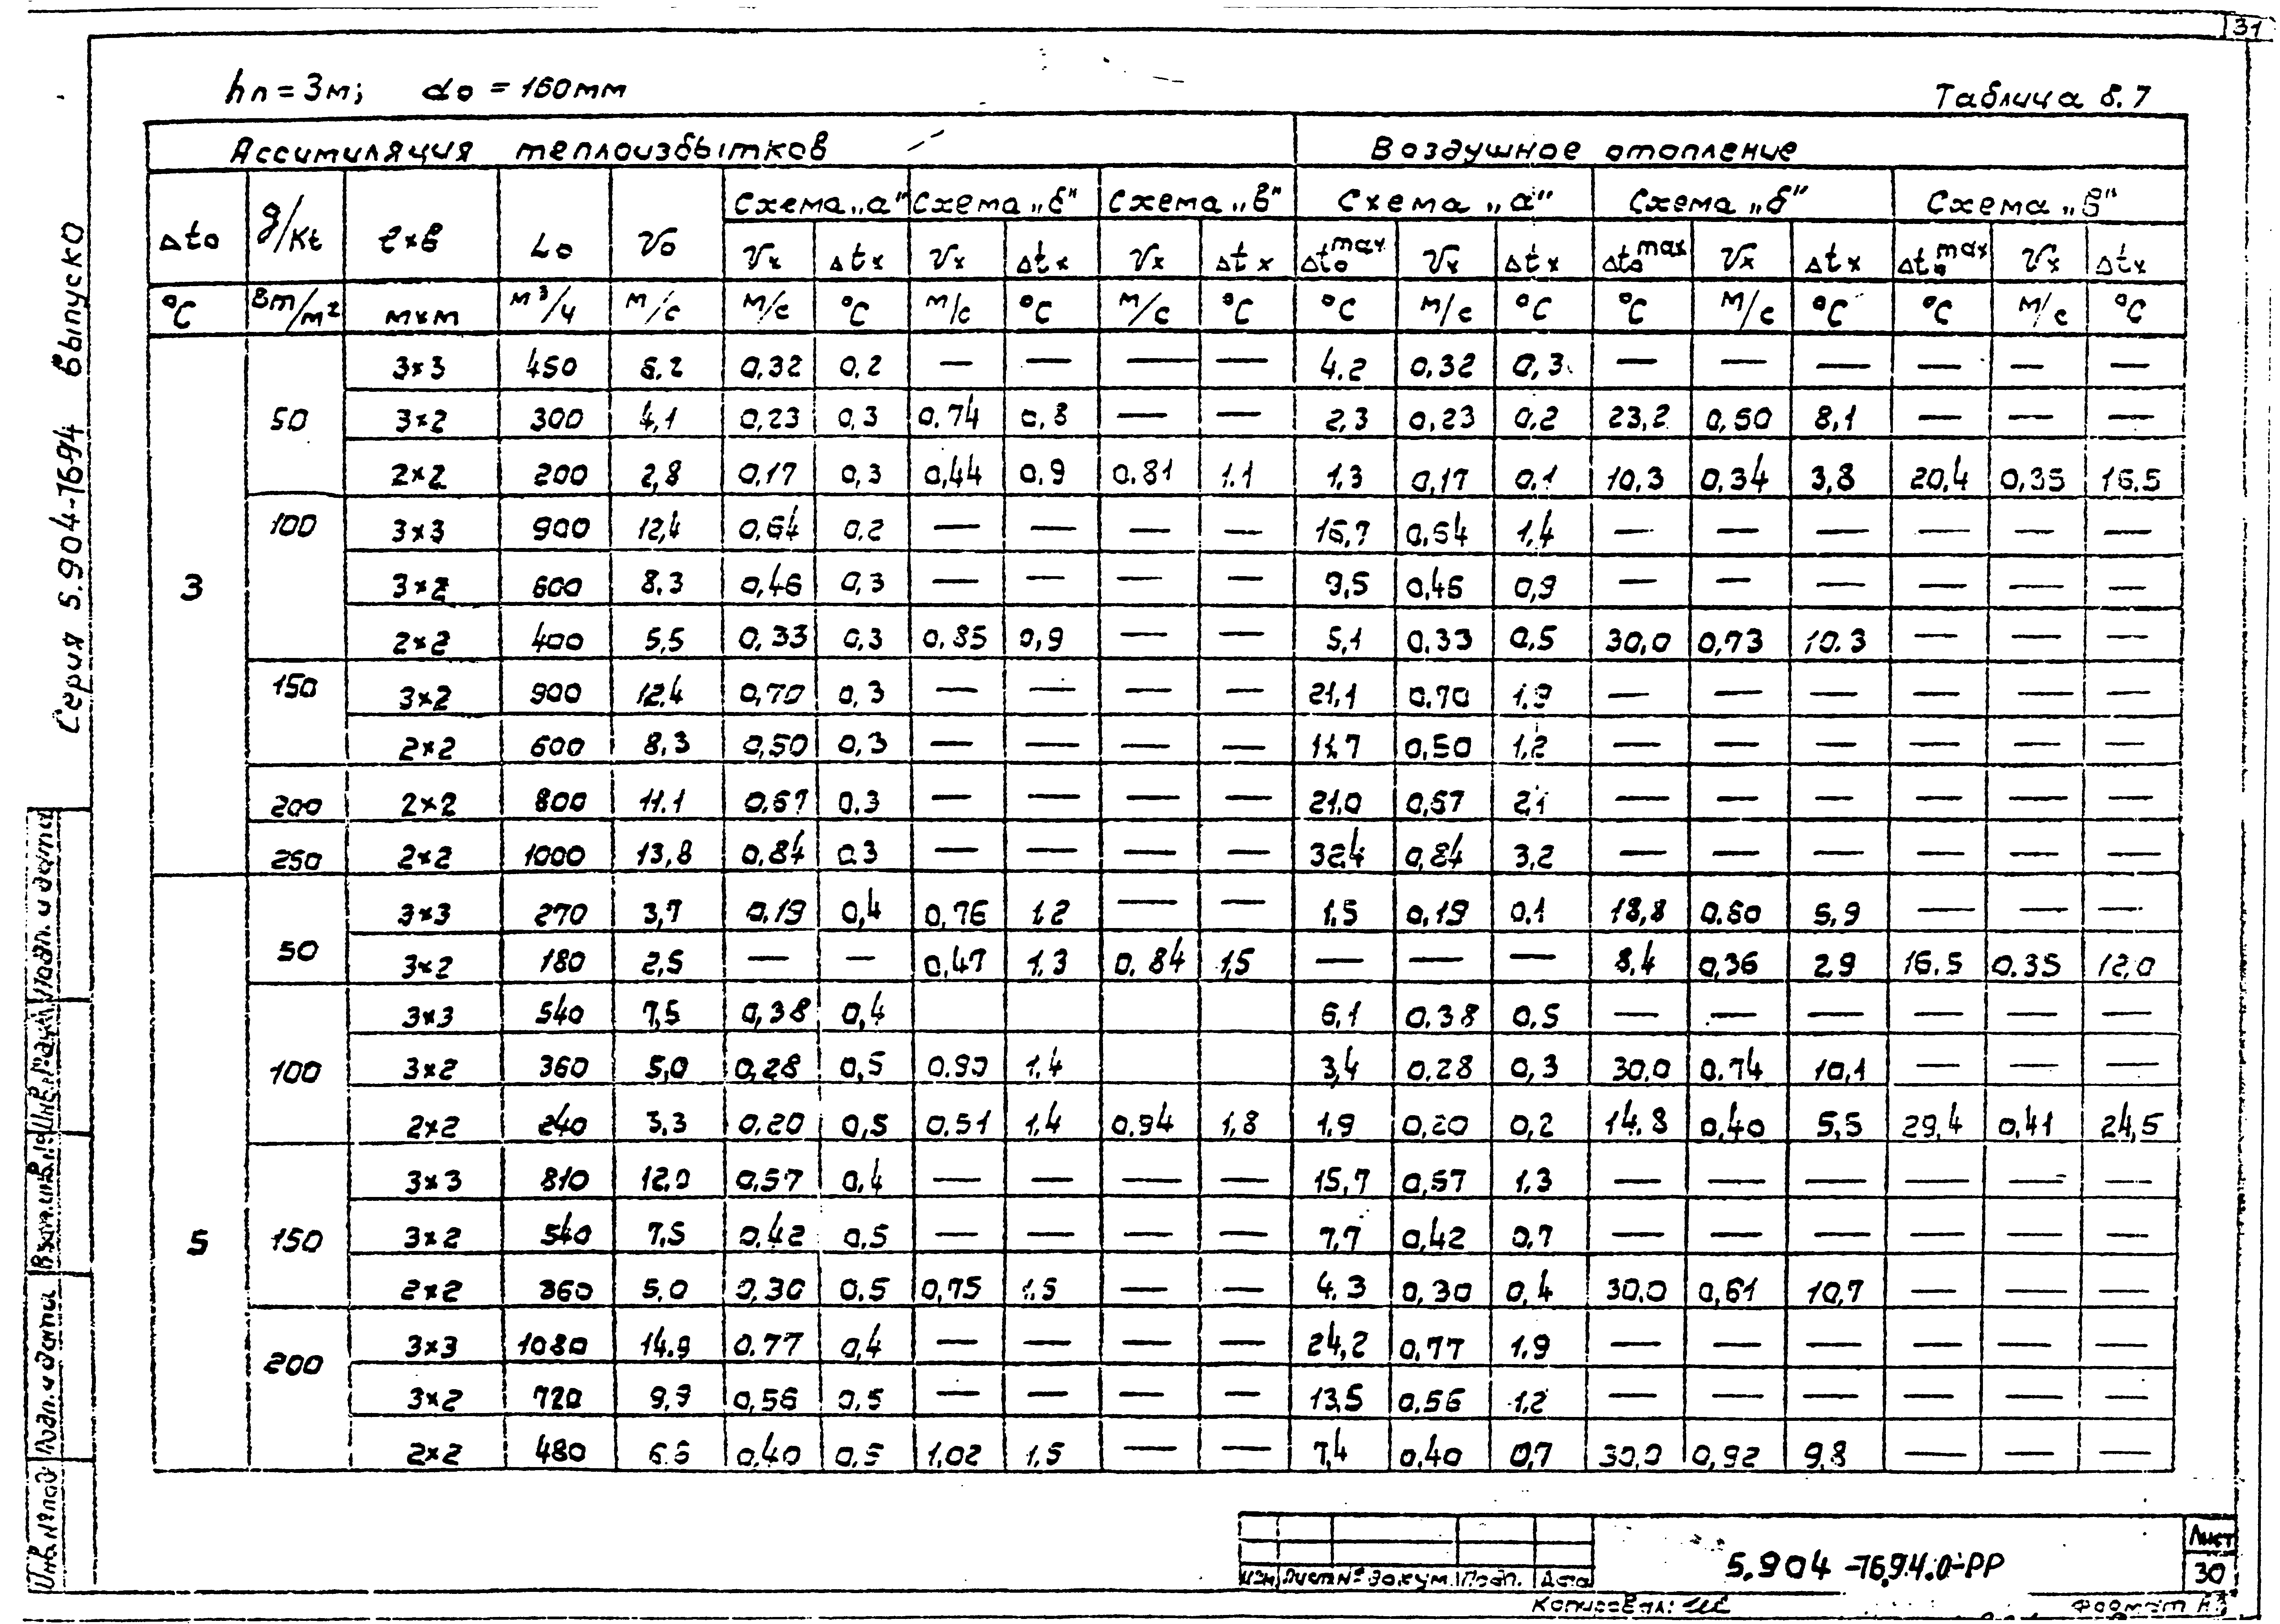 31
hп = 3м; do = 160мм
Таблица 8.7
Ассимиляция теплоизбытков Воздушное отопление
Δto g/Kt ℓ×в Lo Vo Схема „а" Схема „б" Схема „в" Схема „а" Схема „б" Схема „в"
Vx Δtx Vx Δtx Vx Δtx Δto max Vx Δtx Δto max Vx Δtx Δto max Vx Δtx
°C Вт/м² м×м м³/ч м/с м/с °C м/с °C м/с °C °C м/с °C °C м/с °C °C м/с °C
3 50 3×3 450 6.2 0,32 0,2 — — — — 4.2 0.32 0,3 — — — — — —
3×2 300 4,1 0,23 0,3 0,74 0,8 — — 2,3 0,23 0,2 23,2 0,50 8,1 — — —
2×2 200 2,8 0,17 0,3 0,44 0.9 0.81 1.1 1,3 0,17 0.1 10,3 0,34 3,8 20,4 0,35 16.5
100 3×3 900 12,4 0,64 0,2 — — — — 16,7 0,64 1,4 — — — — — —
3×2 600 8.3 0,46 0,3 — — — — 9,5 0,46 0,9 — — — — — —
2×2 400 5,5 0,33 0,3 0,85 0,9 — — 5,1 0,33 0,5 30,0 0,73 10.3 — — —
150 3×2 900 12.4 0,70 0,3 — — — — 21,1 0.70 1.9 — — — — — —
2×2 600 8,3 0,50 0,3 — — — — 11.7 0,50 1,2 — — — — — —
200 2×2 800 11.1 0,67 0.3 — — — — 21,0 0,67 2,1 — — — — — —
250 2×2 1000 13,8 0,84 0.3 — — — — 32,4 0,84 3,2 — — — — — —
5 50 3×3 270 3,7 0,19 0,4 0,76 1.2 — — 1.5 0,19 0.1 18,8 0.60 5,9 — — —
3×2 180 2,5 — — 0,47 1,3 0,84 1,5 — — — 8,4 0,36 2,9 16.5 0.35 12,0
100 3×3 540 7,5 0,38 0,4 6,1 0.38 0,5 — — — — — —
3×2 360 5,0 0,28 0,5 0.90 1,4 3,4 0.28 0,3 30.0 0.74 10,1 — — —
2×2 240 3.3 0,20 0,5 0.51 1,4 0.94 1,8 1.9 0,20 0,2 14.8 0,40 5,5 29,4 0,41 24,5
150 3×3 810 12.0 0,57 0,4 — — — — 15,7 0,57 1.3 — — — — — —
3×2 540 7,5 0.42 0,5 — — — — 7,7 0,42 0.7 — — — — — —
2×2 360 5,0 0,30 0.5 0,75 1,5 — — 4.3 0,30 0,4 30,0 0,61 10,7 — — —
200 3×3 1080 14.9 0.77 0,4 — — — — 24,2 0,77 1.9 — — — — — —
3×2 720 9,9 0,56 0,5 — — — — 13,5 0.56 1.2 — — — — — —
2×2 480 6.6 0,40 0,5 1,02 1.5 — — 7,4 0,40 0,7 30,0 0,92 9,8 — — —
Серия 5.904-76.94 выпуск 0
Инв. № подл Подп. и дата Взам. инв. № Инв. № дубл Подп. и дата
Изм Лист № докум. Подп. Дата
5.904-76.94.0-РР
Лист
30
Копировал:
Формат А3